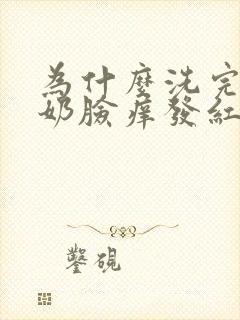 為什麼洗完
奶臉痒發紅
鑿硯